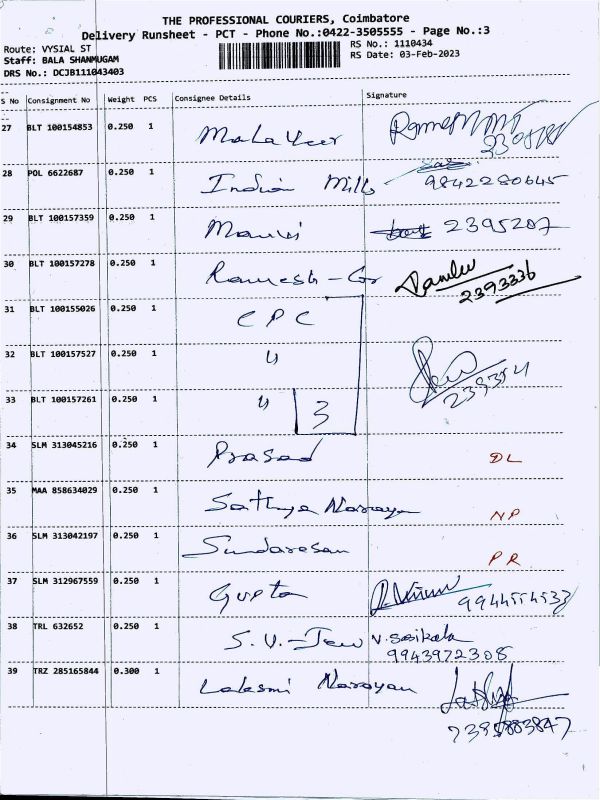 THE PROFESSIONAL COURIERS, Coimbatore
Delivery Runsheet - PCT - Phone No.:0422-3505555 - Page No.:3
Route: VYSIAL ST
RS No.: 1110434
Staff: BALA SHANMUGAM
RS Date: 03-Feb-2023
DRS No.: DCJB111043403
S No Consignment No Weight PCS Consignee Details Signature
27 BLT 100154853 0.250 1
28 POL 6622687 0.250 1 Indian Mills 9842280645
29 BLT 100157359 0.250 1 2395207
30 BLT 100157278 0.250 1 Ramesh - 2393336
31 BLT 100155026 0.250 1 CPC
32 BLT 100157527 0.250 1 "
33 BLT 100157261 0.250 1 " 3
34 SLM 313045216 0.250 1 Prasad DL
35 MAA 858634029 0.250 1 Sathya Narayan NP
36 SLM 313042197 0.250 1 Sundaresan PR
37 SLM 312967559 0.250 1 Gupta
38 TRL 632652 0.250 1 S.V. - V. Sasikala
9943972308
39 TRZ 285165844 0.300 1 Laksmi Narayan